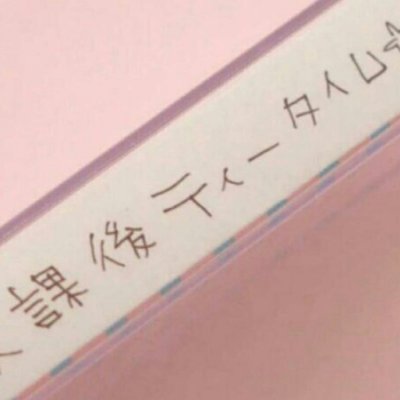 課後ティータイム☆